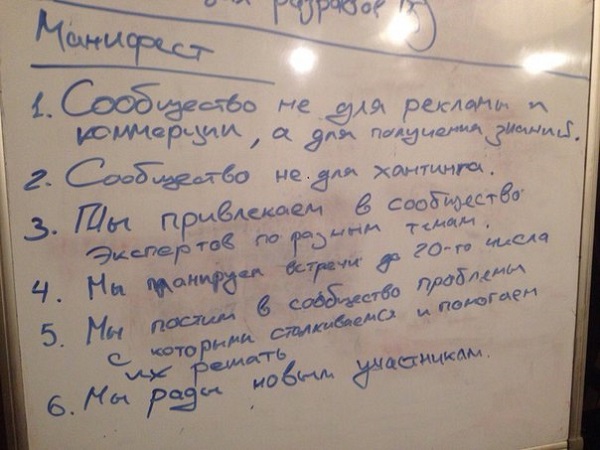 для
Манифест
1. Сообщество не для рекламы и
коммерции, а для получения знаний.
2. Сообщество не для хантинга.
3. Мы привлекаем в сообщество
экспертов по разным темам.
4. Мы планируем встречи до 20-го числа
5. Мы постим в сообщество проблемы
с которыми сталкиваемся и помогаем
их решать
6. Мы рады новым участникам.